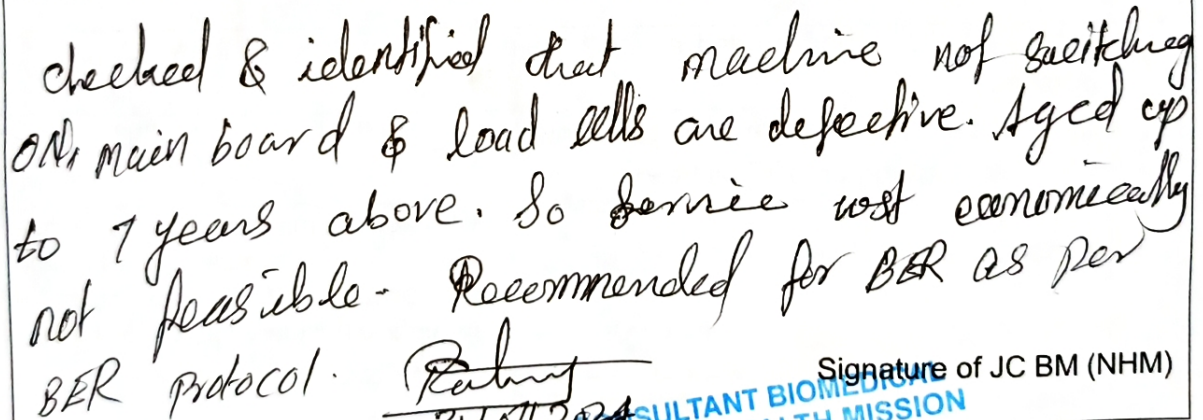 checked & identified that machine not switching
ON, main board & load cells are defective. Aged up
to 7 years above. So service cost economically
not feasible. Recommended for BER as per
BER protocol.
Signature of JC BM (NHM)
SULTANT BIOMEDICAL
LTH MISSION